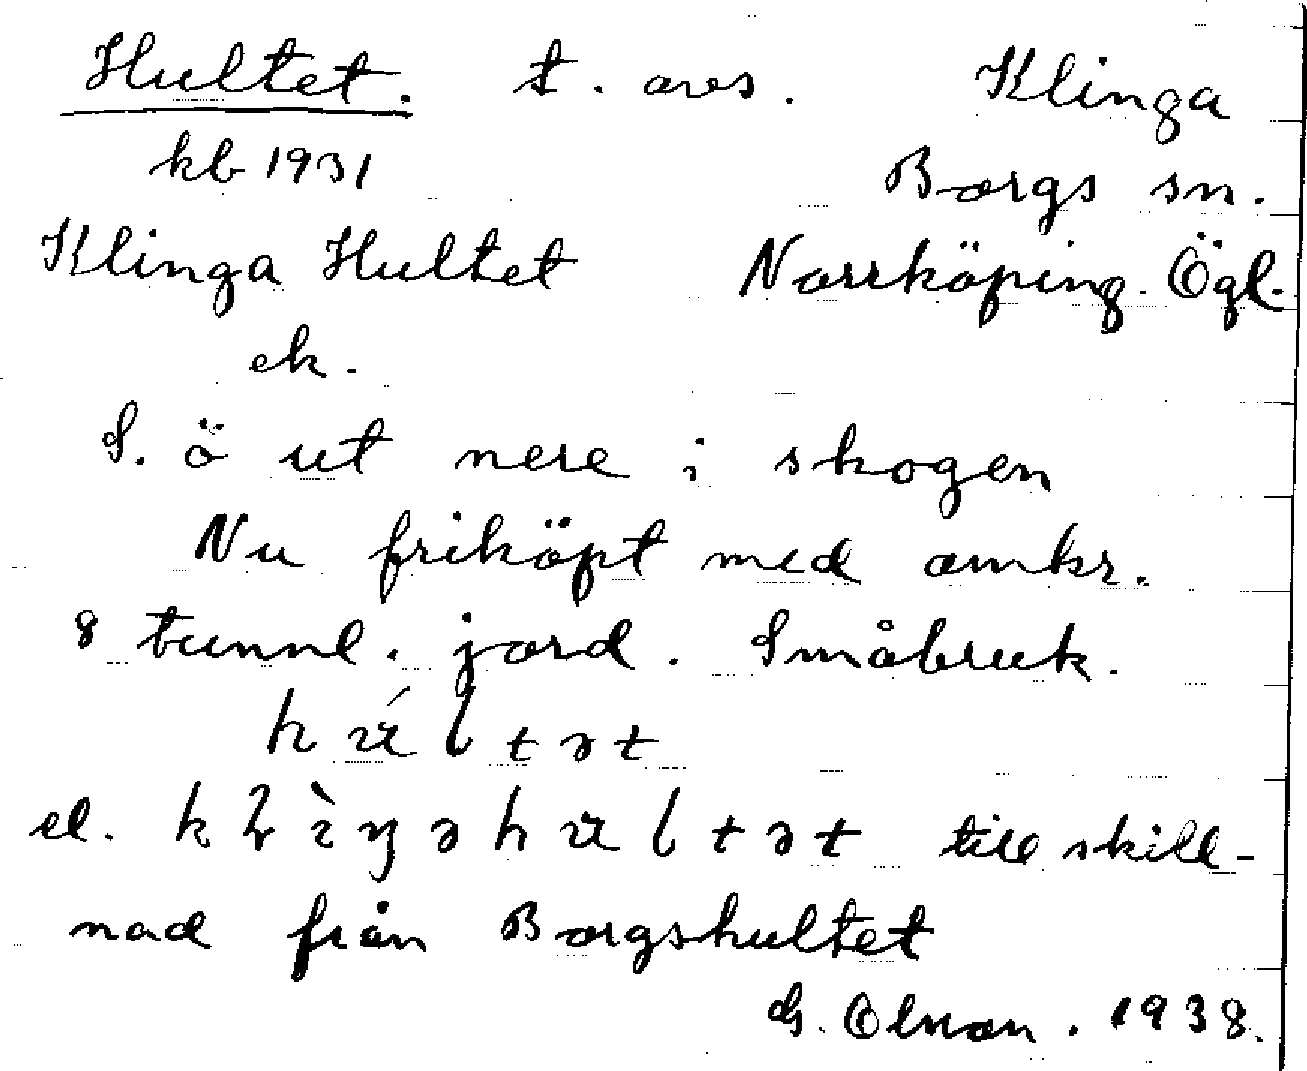 Hultet. t. avs. Klinga
kb 1931 Borgs sn.
Klinga Hultet Norrköping. Ögl.
ek.
S. ö ut nere i skogen
Nu friköpt med omkr.
8 tunnl. jord. Småbruk.
hu̇́ltət
el. klìŋəhultət till skill-
nad från Borgshultet
G. Olson. 1938.